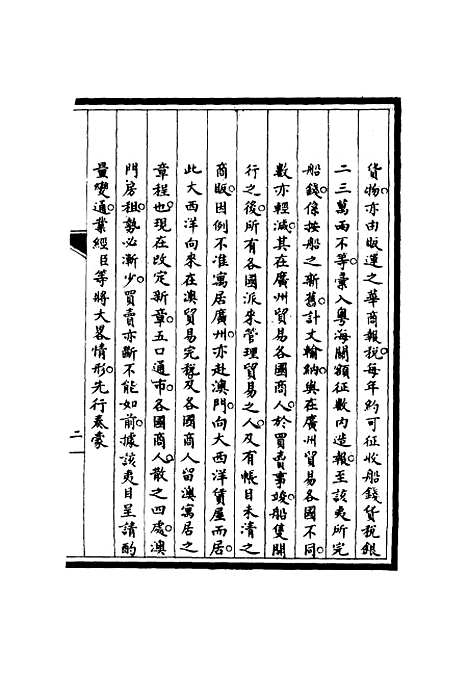 貨物亦由販運之華商報稅每年約可征收船錢貨稅銀
二三萬兩不等彙入粵海關額征數內造報至該夷所完
船錢係按船之新舊計丈輸納與在廣州貿易各國不同
數亦輕減其在廣州貿易各國商人於買賣事竣船隻開
行之後所有各國派來管理貿易之人及有帳目未清之
商販因例不准寓居廣州亦赴澳門向大西洋賃屋而居
此大西洋向來在澳貿易完稅及各國商人留澳寓居之
章程也現在改定新章五口通市各國商人散之四處澳
門房租勢必漸少買賣亦斷不能如前據該夷目呈請酌
量變通業經臣等將大畧情形先行奏蒙
二